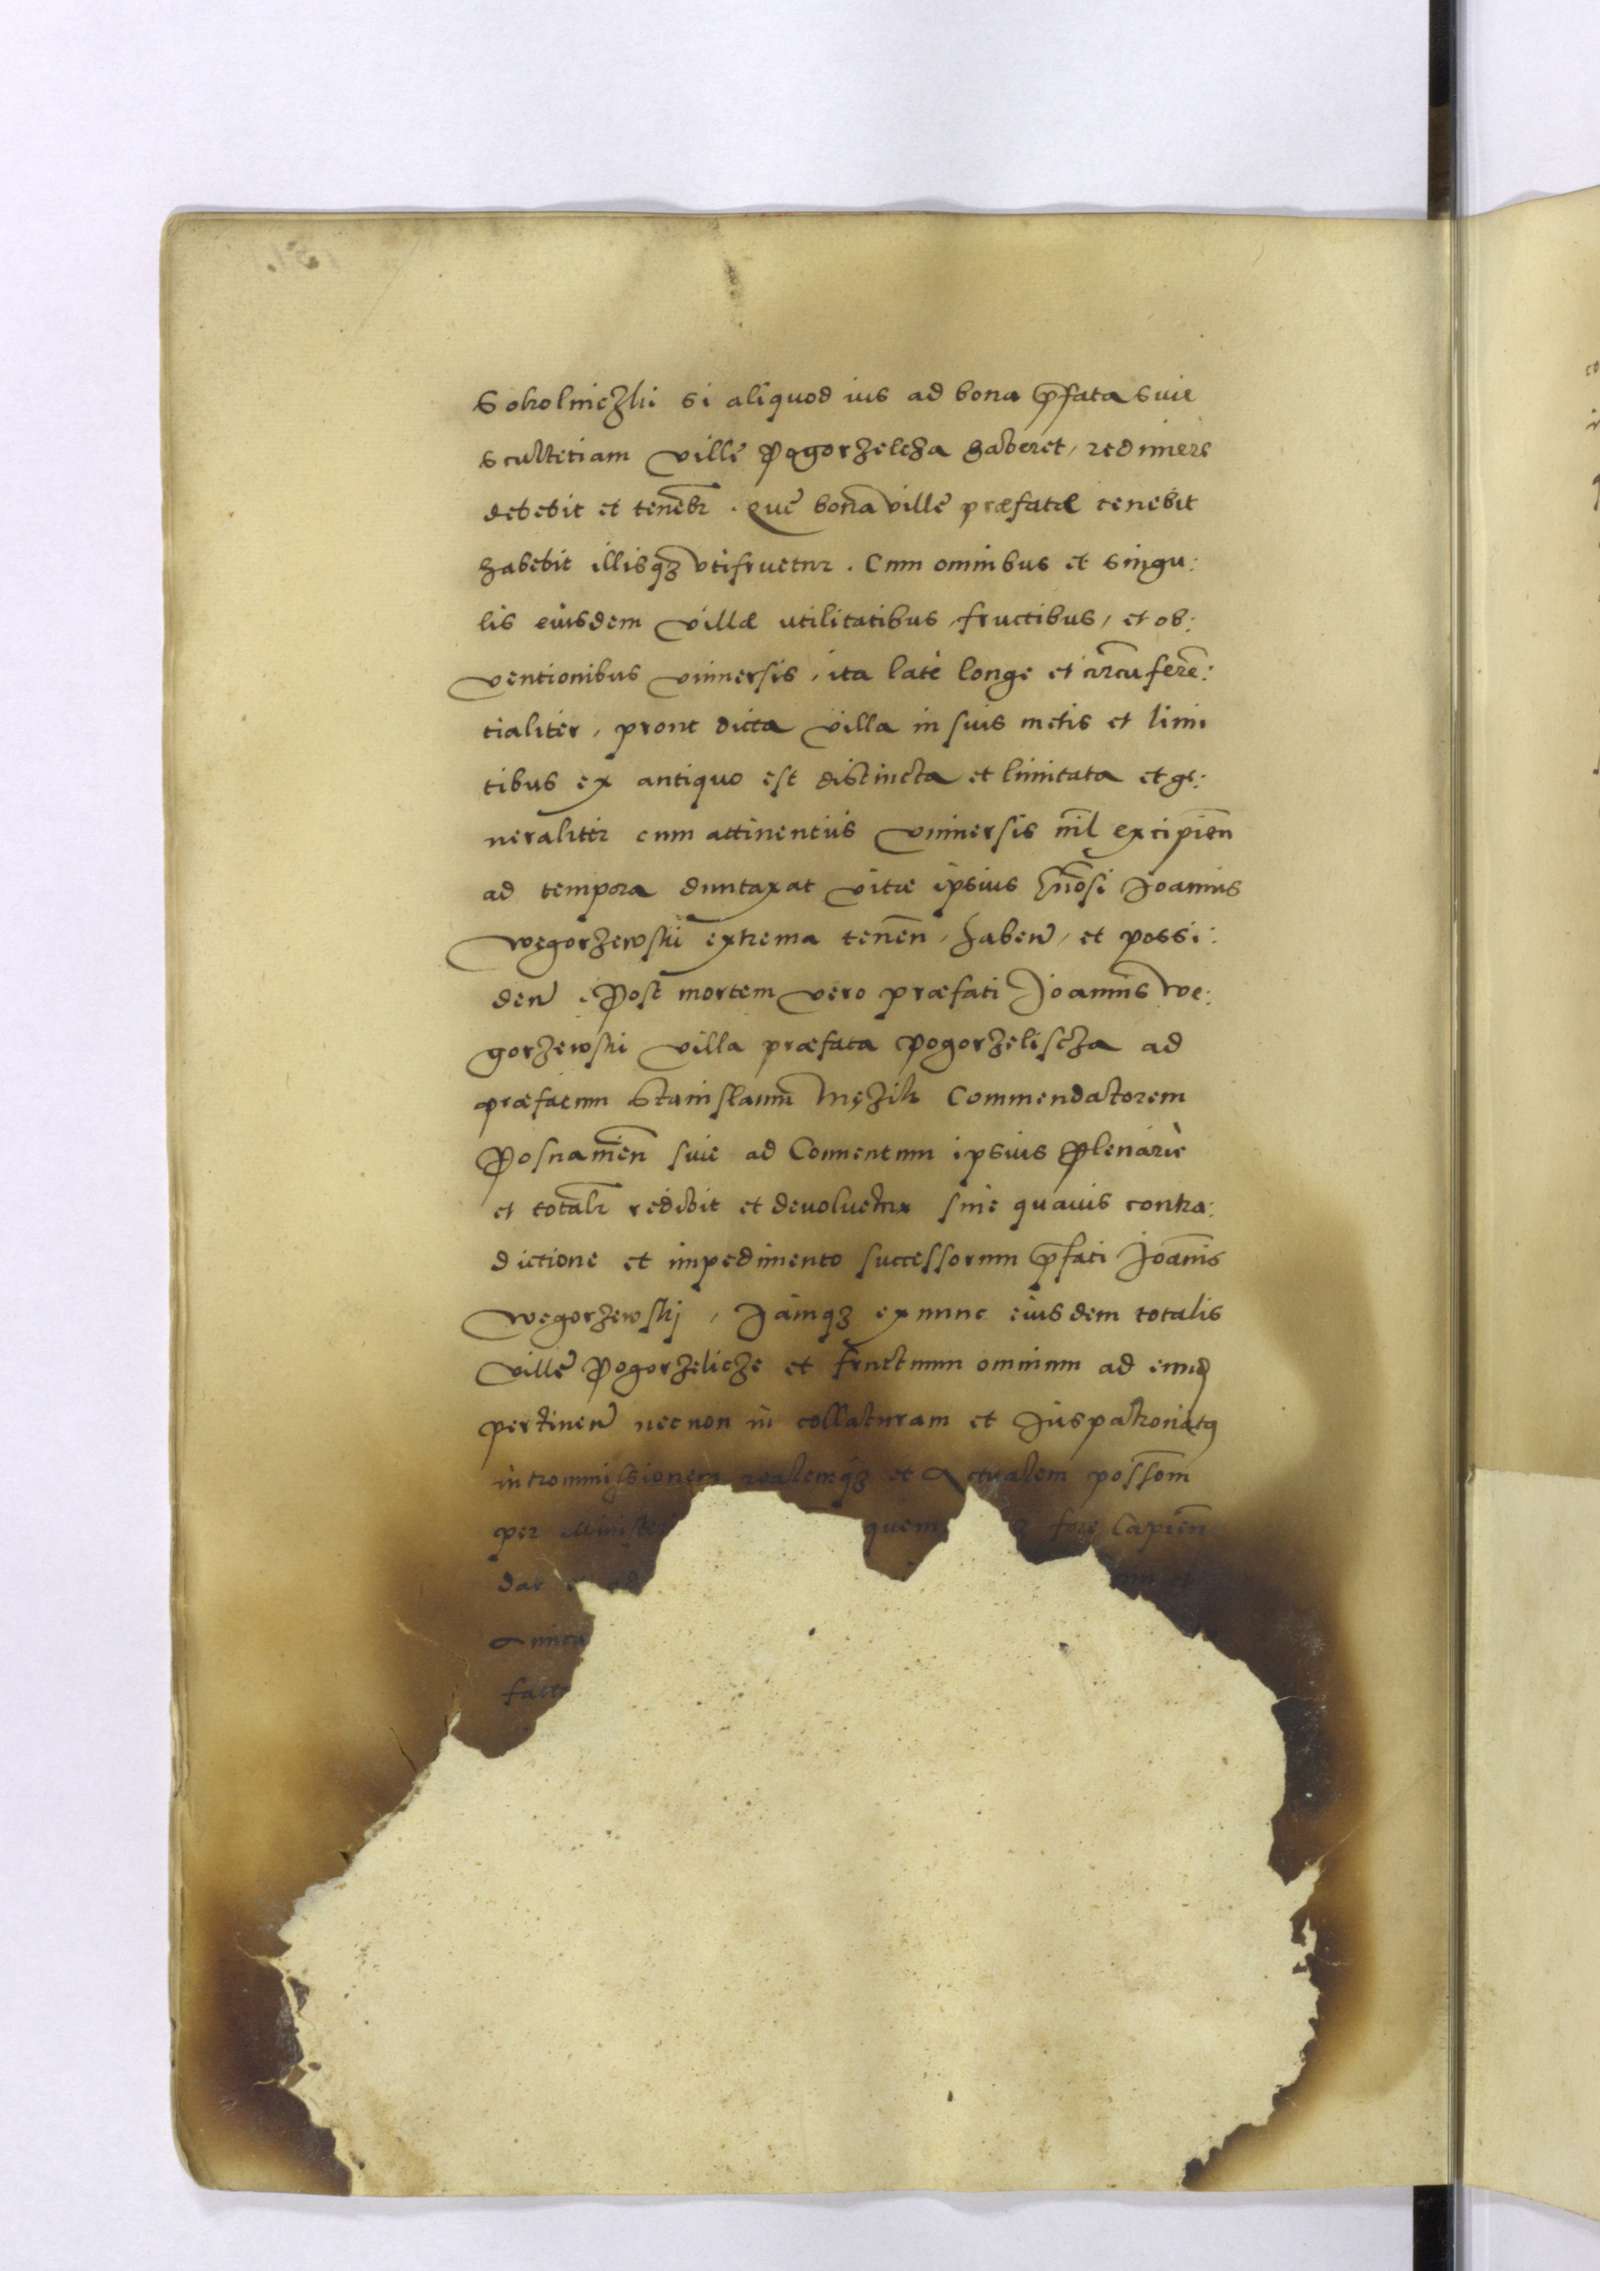 Sokolniczki si aliquod ius ad bona p̃fata siue
scultetiam villę Pogorzelcza haberet, redimere
debebit et tenebr̃. Quę bona villę præfatæ tenebit
habebit illisq3 vtifruetur. Cum omnibus et singu:
lis eiusdem villæ utilitatibus, fructibus, et ob:
ventionibus vniuersis, ita latè longe et circumferẽ:
tialiter, prout dicta villa in suis metis et limi
tibus ex antiquo est distincta et limitata et ge:
neraliter cum attinentiis vniuersis nĩl excipieñ
ad tempora duntaxat vitæ ipsius Gñosi Joannis
Węgorzewski extrema teneñ, habeñ, et possi:
deñ. Post mortem vero præfati Joannis We:
gorzewski villa præfata Pogorzelicza ad
præfatum Stanislaum Mężik Commendatorem
Posnanieñ siue ad Conuentum ipsius plenariè
et totalr̃ redibit et deuoluetur sine quauis contra:
dictione et impedimento successorum p̃fati Joañis
Wegorzewskj, Jamq3 ex nunc eiusdem totalis
villę Pogorzelicze et fructuum omnium ad eund
pertineñ necnon in collaturam et Juspatronatus
intromissionem realemq3 et Actualem possom̃
per Minister quem fore capieñ
dat et
Amica
fact